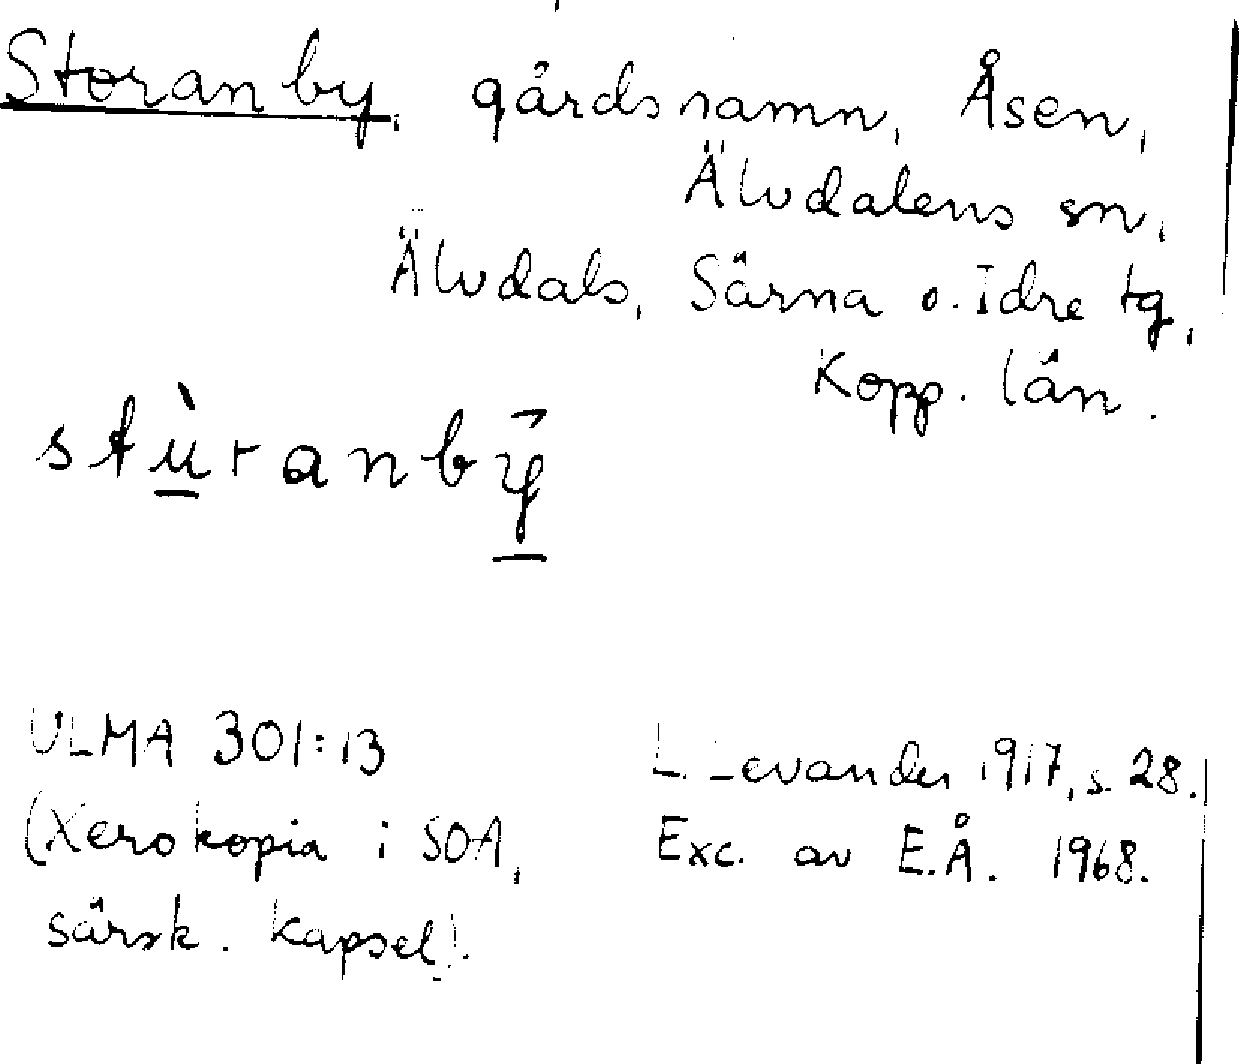 Storanby, gårdsnamn, Åsen,
Älvdalens sn,
Älvdals, Särna o. Idre tg,
Kopp. län.
stù̱ranbȳ̱
ULMA 301:13
(Xerokopia i SOA,
särsk. kapsel).
L. Levander 1917, s. 28.
Exc. av E.Å. 1968.